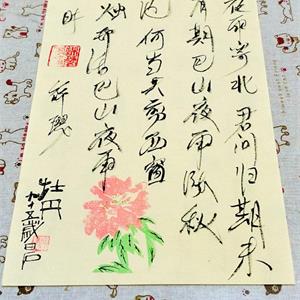 夜雨寄北君问归期未
有期巴山夜雨涨秋
池何当共剪西窗
烛却话巴山夜雨
时
许
牡丹
九十五歲